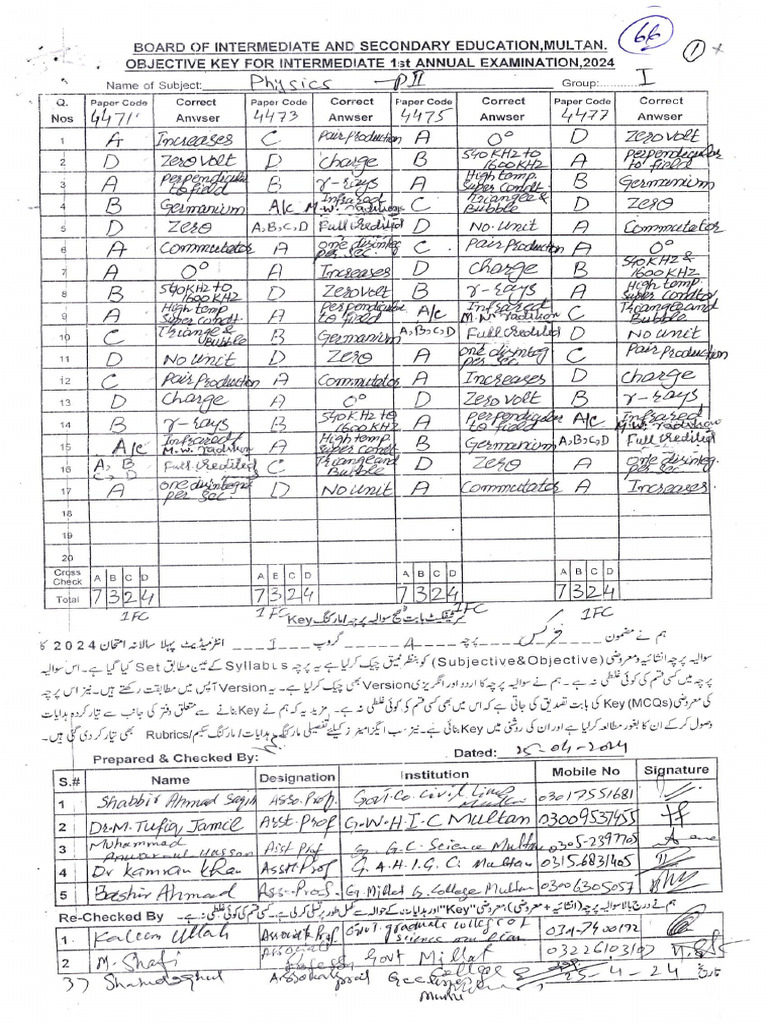 66
1
BOARD OF INTERMEDIATE AND SECONDARY EDUCATION,MULTAN.
OBJECTIVE KEY FOR INTERMEDIATE 1st ANNUAL EXAMINATION,2024
Name of Subject: Physics - P II Group: I
Q. Nos Paper Code 4471 Correct Anwser Paper Code 4473 Correct Anwser Paper Code 4475 Correct Anwser Paper Code 4477 Correct Anwser
1 A Increases C Pair Production A 0° D Zero Volt
2 D Zero Volt D charge B 540 KHz to 1600 KHz A perpendicular to field
3 A perpendicular to field B γ-rays A High temp. Super Condt. B Germanium
4 B Germanium A/C Infrared M.W. radition C Triangle & Bubble D Zero
5 D Zero A,B,C,D Full Credited D No.unit A Commutator
6 A Commutator A one disinteg per sec. C Pair Production A 0°
7 A 0° A Increases D charge B 540 KHz & 1600 KHz
8 B 540 KHz to 1600 KHz D Zero Volt B γ-rays A High temp. Super Condtr
9 A High temp Super Condt. A Perpendicular to field A/C Infrared M.W. radition C Triangle and Bubble
10 C Triangle & Bubble B Germanium A,B,C,D Full Credited D No unit
11 D No unit D Zero A one disinteg per sec. C Pair Production
12 C Pair Production A Commutator A Increases D charge
13 D Charge A 0° D Zero Volt B γ-rays
14 B γ-rays B 540 KHz to 1600 KHz A perpendicular to field A/C Infrared M.W. radition
15 A/C Infrared M.W. radition A High temp. Super condt B Germanium A,B,C,D Full Credited
16 A, B C, D Full Credited C Triangle and Bubble D Zero A one disinteg. per sec.
17 A one disinteg per sec. D No unit A Commutator A Increases
18
19
20
Cross Check A B C D A E C D A B C D A B C D
Total 7 3 2 4 7 3 2 4 7 3 2 4 7 3 2 4
1FC 1FC 1FC 1FC
سرٹیفکیٹ بابت تصحیح سوالیہ پرچہ / مارکنگ Key
ہم نے مضمون فزکس پرچہ A گروپ I انٹرمیڈیٹ پہلا سالانہ امتحان 2024 کا
سوالیہ پرچہ انشائیہ و معروضی (Subjective&Objective) کو بنظر عمیق چیک کر لیا ہے یہ پرچہ Syllabus کے عین مطابق Set کیا گیا ہے۔ اس سوالیہ
پرچہ میں کسی قسم کی کوئی غلطی نہ ہے۔ ہم نے سوالیہ پرچہ کا اردو اور انگریزی Version بھی چیک کر لیا ہے۔ یہ Version آپس میں مطابقت رکھتے ہیں۔ نیز اس پرچہ
کی معروضی (MCQs) Key کی بابت تصدیق کی جاتی ہے کہ اس میں بھی کسی قسم کی کوئی غلطی نہ ہے۔ مزید یہ کہ ہم نے Key بنانے سے متعلق دفتر کی جانب سے تیار کردہ ہدایات
وصول کر کے ان کا بغور مطالعہ کر لیا ہے اور ان کی روشنی میں Key بنائی ہے۔ نیز سب ایگزامینرز کیلئے تفصیلی مارکنگ ہدایات / مارکنگ سکیم / Rubrics بھی تیار کر دی گئی ہیں۔
Prepared & Checked By: Dated: 25-04-2024
S.# Name Designation Institution Mobile No Signature
1 Shabbir Ahmad Asso. Prof. Govt. Co. Civil Lines Multan 03017551681
2 Dr. M. Tufiq Jamil Asst Prof G.W.H.I.C Multan 03009537455
3 Muhammad Hassan Asst Prof G. G.C. Science Multan 0305-2397705
4 Dr Kamran Khan Asst Prof G.A.H.I.G.C. Multan 0315-6831405
5 Bashir Ahmad Ass-Prof. G. Millat G. College Multan 03006305057
Re-Checked By ہم نے درج بالا سوالیہ پرچہ (انشائیہ + معروضی) / معروضی "Key" اور ہدایات کے حوالہ سے مکمل طور پر تسلی کر لی ہے۔ کسی قسم کی کوئی غلطی نہ ہے۔
1. Kaleem Ullah Associate Prof Govt. graduate college of science multan
2 M. Shafi Associate Professor Govt Millat College 03226103107
3) Associate prof 25-4-24